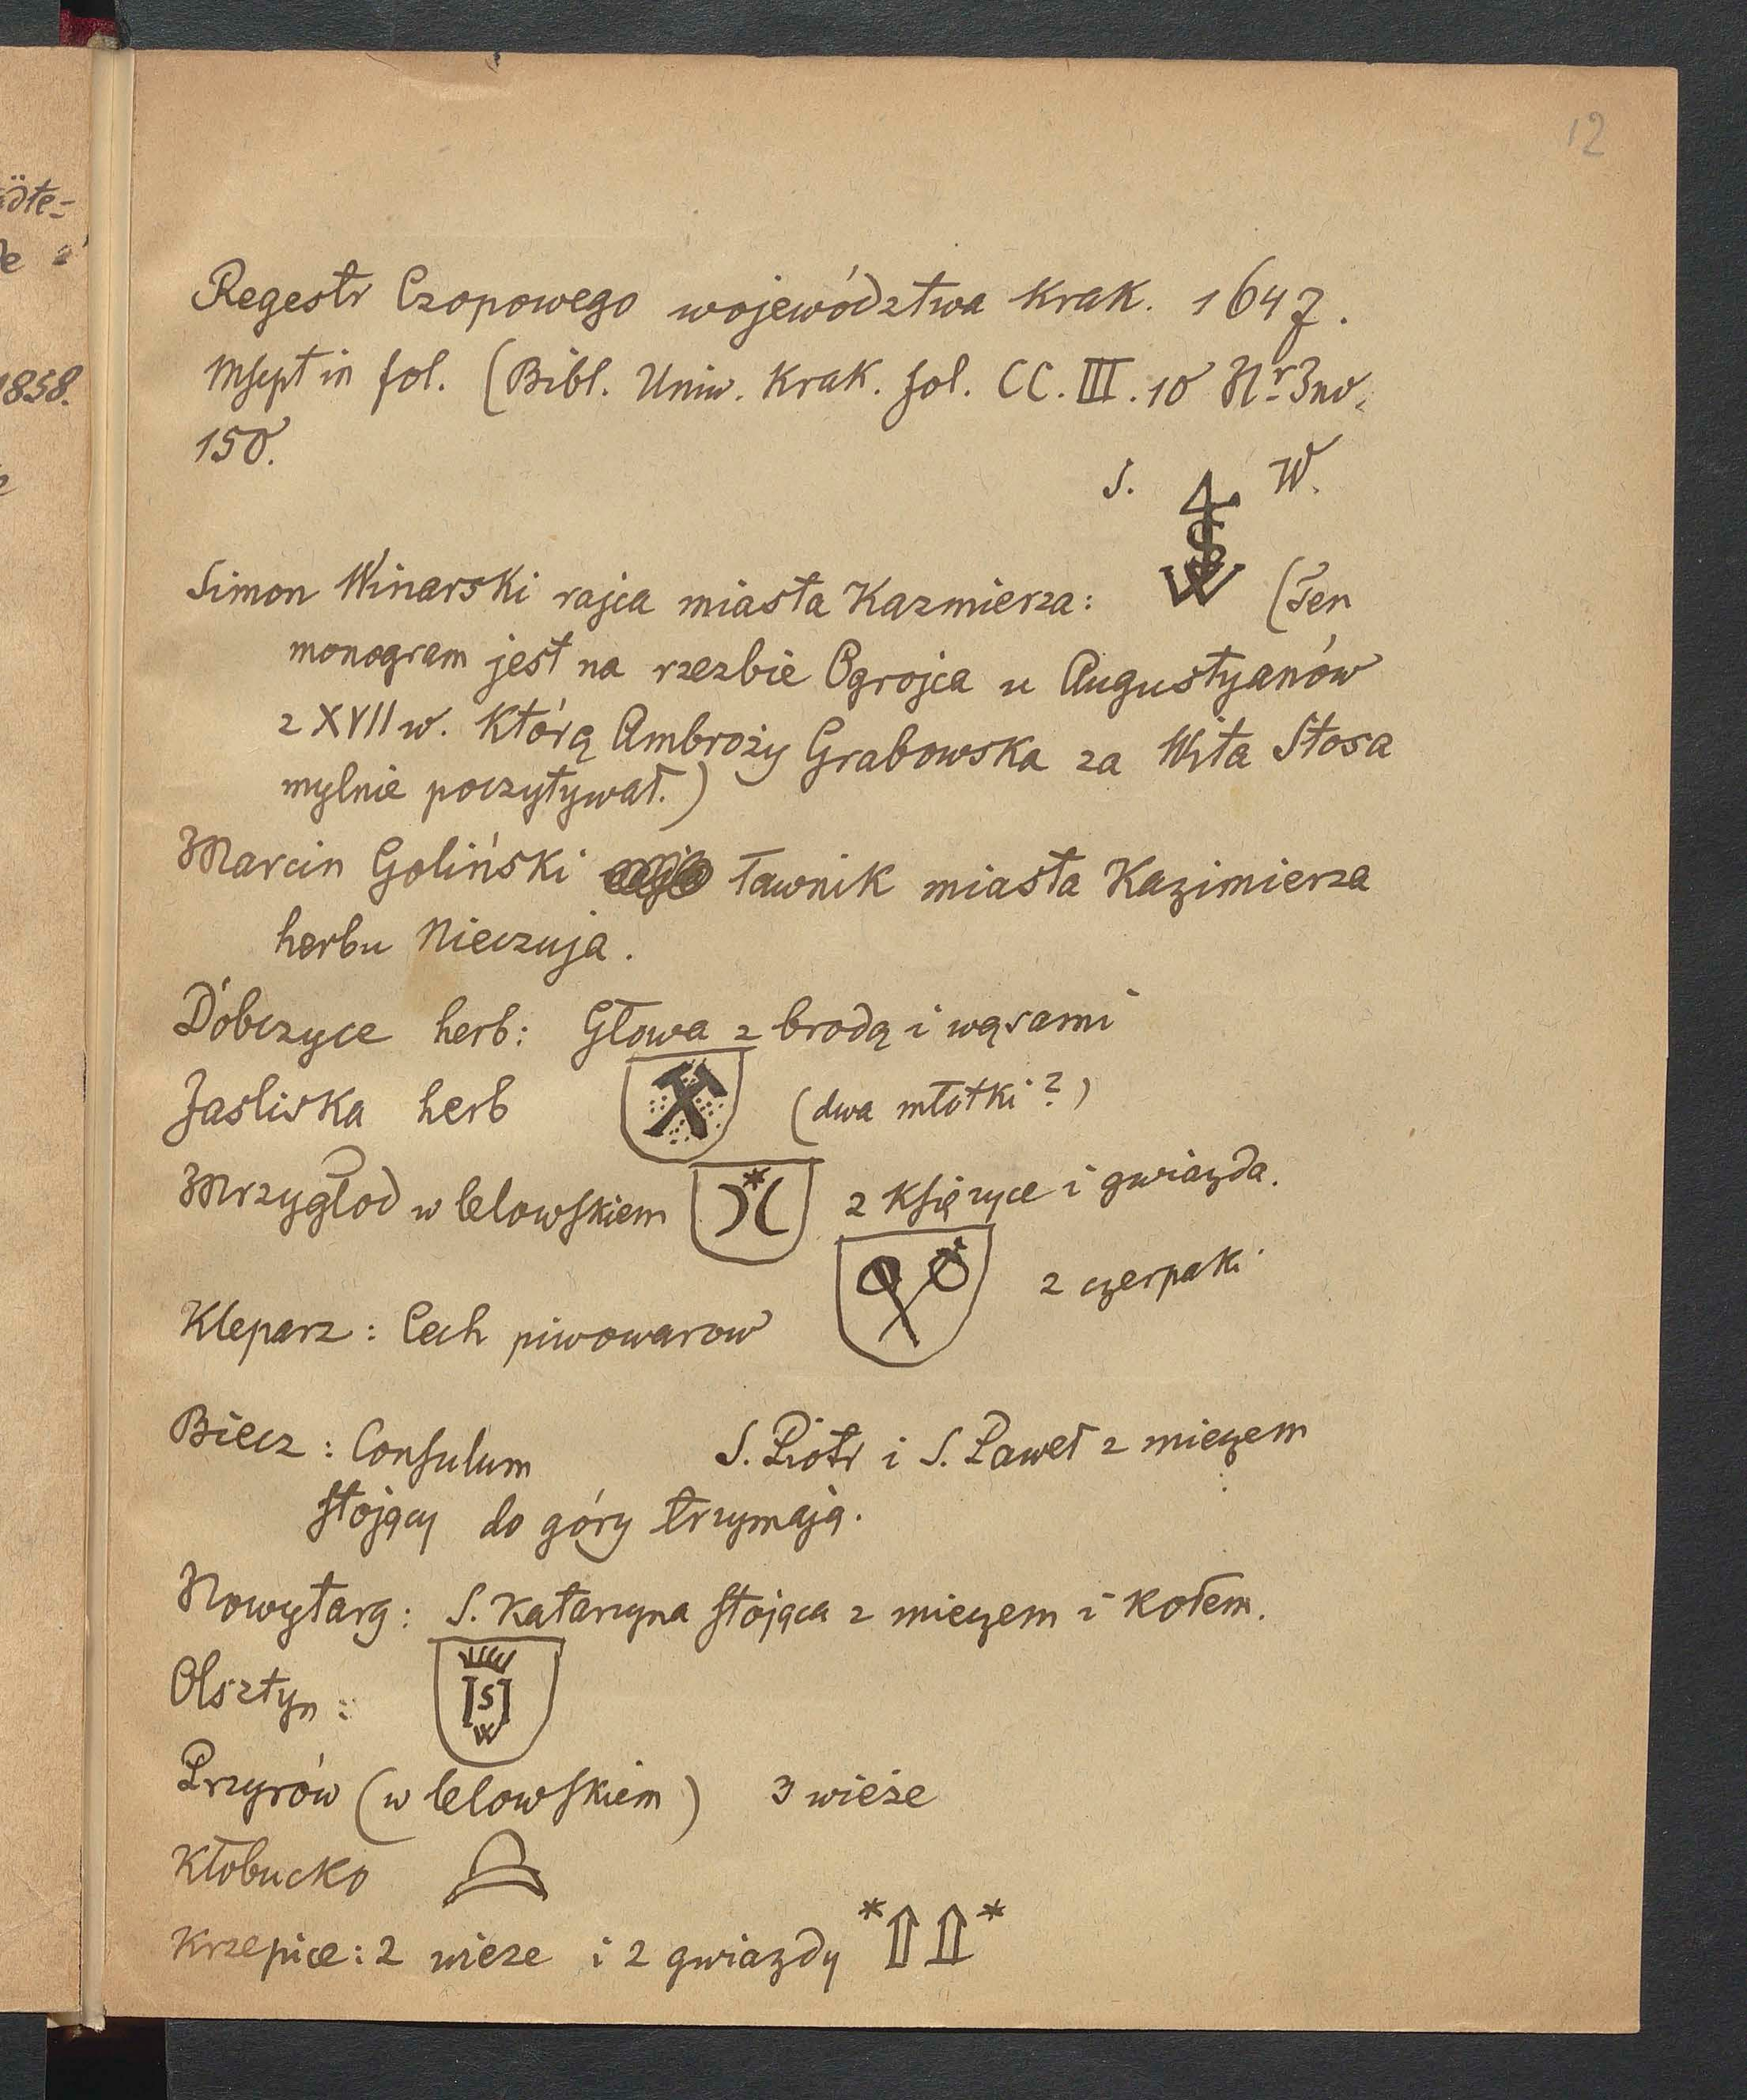 12
ädte-
1858.
Regestr Czopowego województwa Krak. 1647.
Mscpt in fol. (Bibl. Uniw. Krak. fol. CC. III. 10 Nr Inv.
150.
S. W.
Simon Winarski rajca miasta Kazmierza: (Ten
monogram jest na rzezbie Ogrojca u Augustyanów
z XVII w. Którą Ambroży Grabowska za Wita Stosa
mylnie poczytywał.)
Marcin Goliński ławnik miasta Kazimierza
herbu Nieczuja.
Dóbczyce herb: Głowa z brodą i wąsami
Jasliska herb (dwa młotki?)
Mrzygłod w lelowskiem 2 Księzyce i gwiazda.
Kleparz: Cech piwowarow 2 czerpaki
Biecz: Consulum S. Piotr i S. Paweł z mieczem
stojący do góry trzymają.
Nowytarg: S. Katarzyna stojąca z mieczem i Kołem.
Olsztyn: ISI W
Przyrów (w lelowskiem) 3 wieże
Kłobucko
Krzepice: 2 wieze i 2 gwiazdy